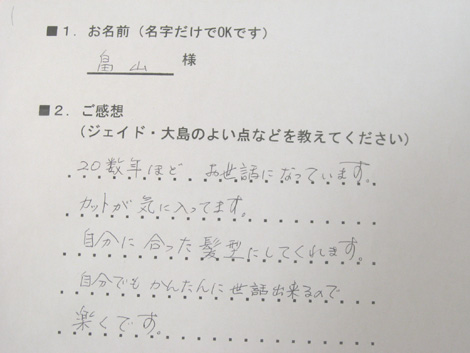 ■1. お名前(名字だけでOKです)
畠山 様
■2. ご感想
(ジェイド・大島のよい点などを教えてください)
20数年ほど お世話になっています。
カットが気に入ってます。
自分に合った髪型にしてくれます。
自分でもかんたんに世話出来るので
楽くです。